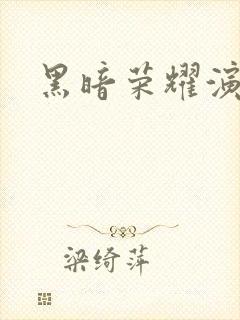 黑暗荣耀演
梁绮萍